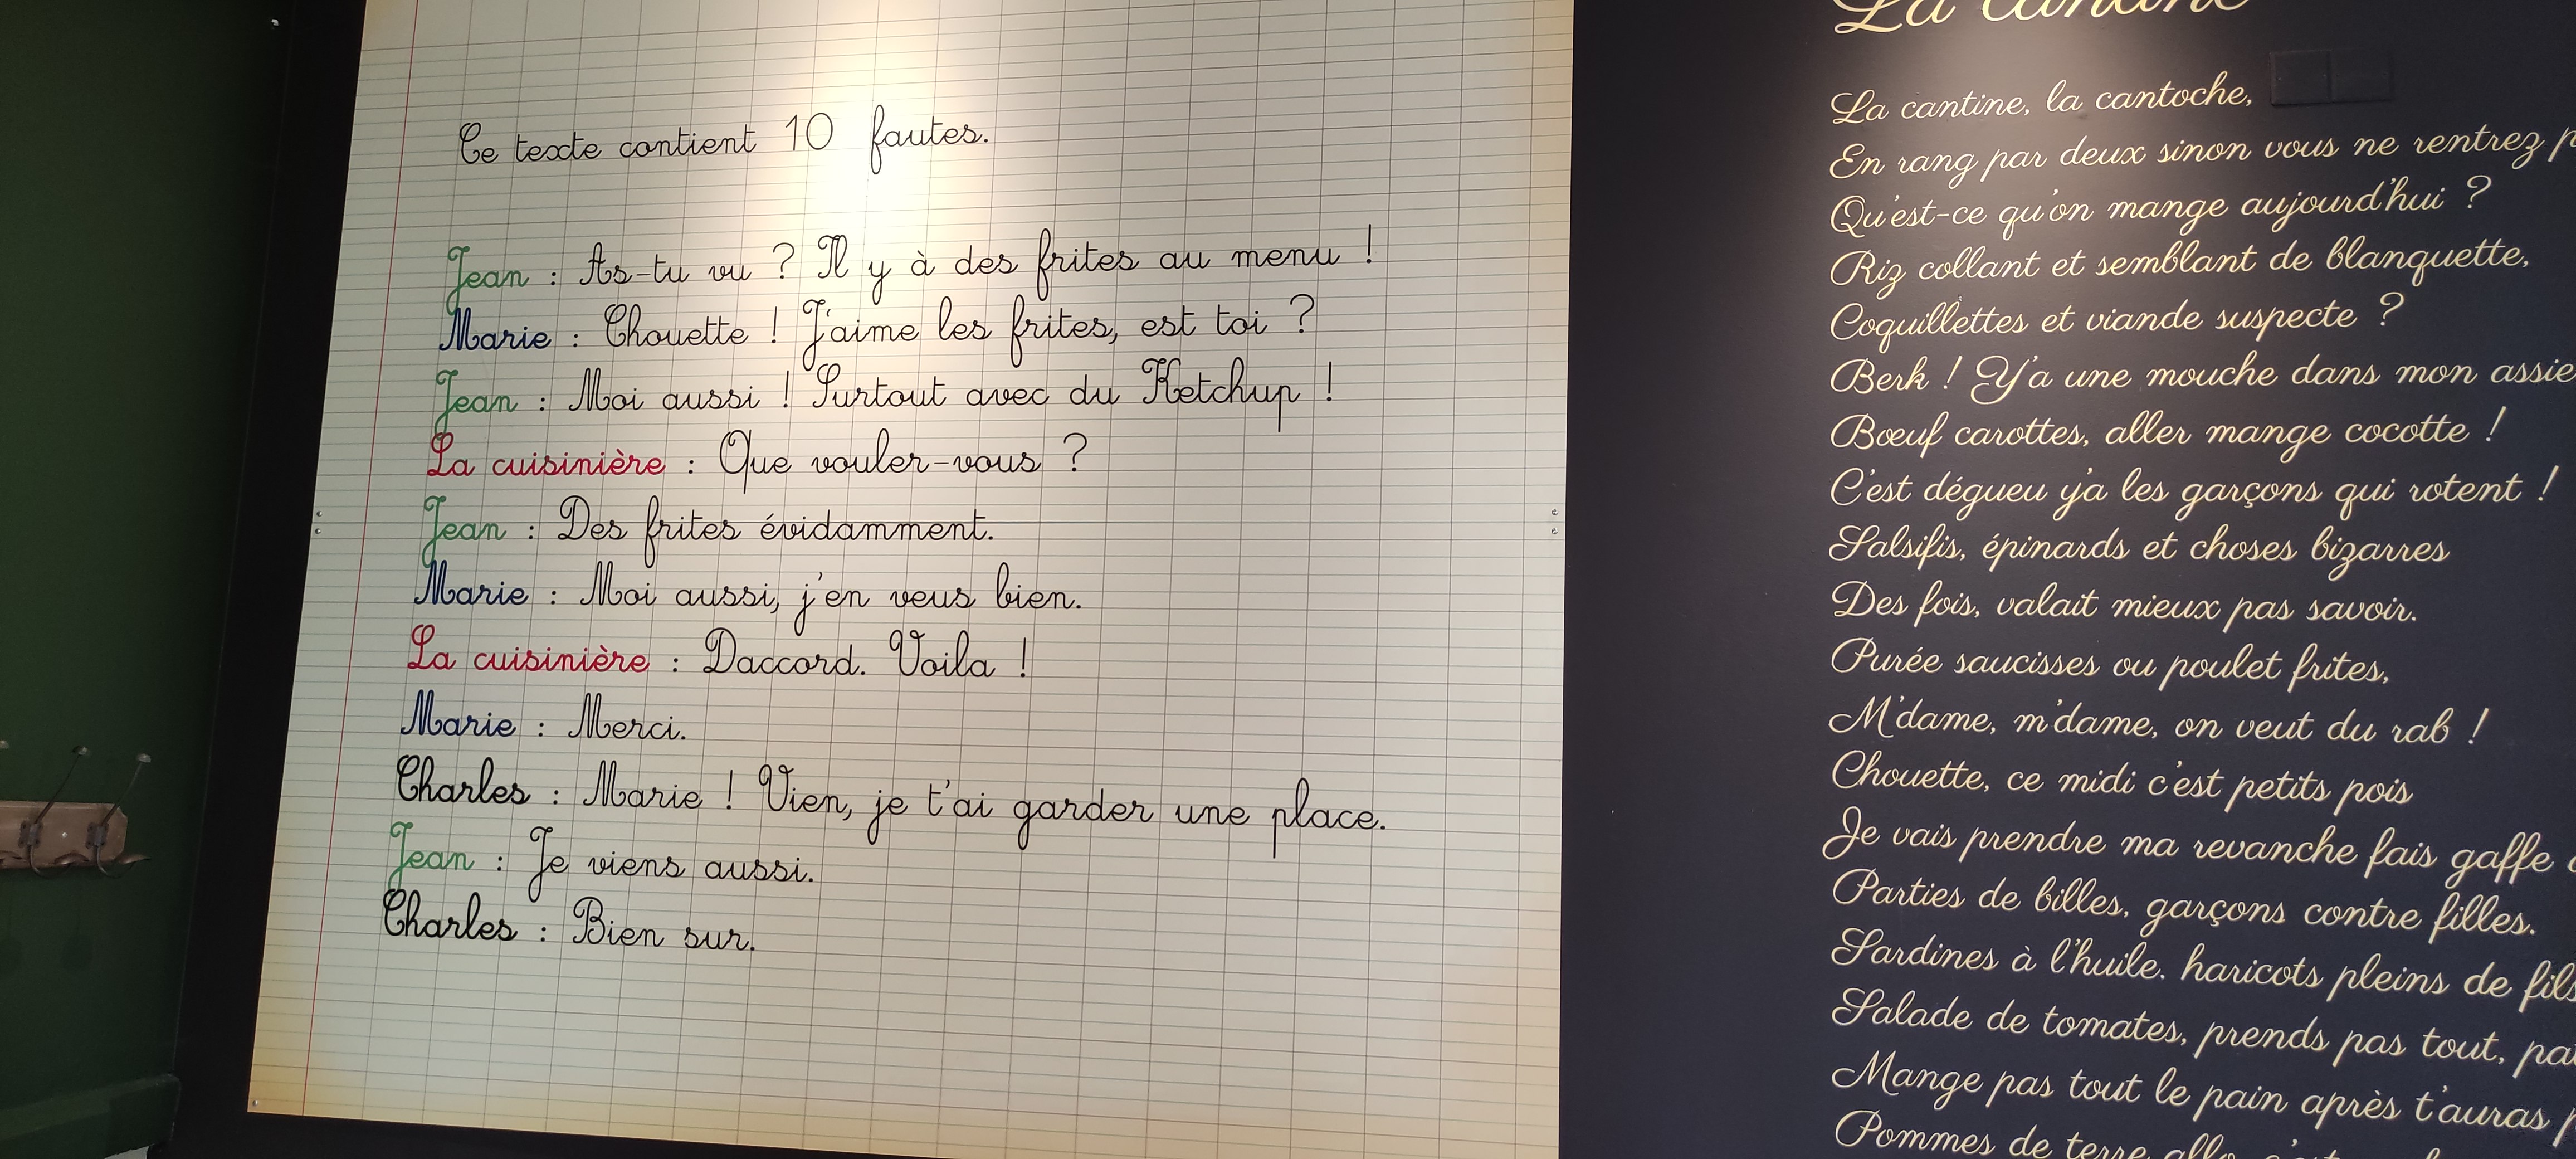 Ce texte contient 10 fautes.
Jean : As-tu vu ? Il y à des frites au menu !
Marie : Chouette ! J'aime les frites, est toi ?
Jean : Moi aussi ! Surtout avec du Ketchup !
La cuisinière : Que vouler-vous ?
Jean : Des frites évidamment.
Marie : Moi aussi, j'en veus bien.
La cuisinière : Daccord. Voila !
Marie : Merci.
Charles : Marie ! Vien, je t'ai garder une place.
Jean : Je viens aussi.
Charles : Bien sur.
La cantine
La cantine, la cantoche,
En rang par deux sinon vous ne rentrez
Qu'est-ce qu'on mange aujourd'hui ?
Riz collant et semblant de blanquette,
Coquillettes et viande suspecte ?
Berk ! Y'a une mouche dans mon
Bœuf carottes, aller mange cocotte !
C'est dégueu y'a les garçons qui rotent !
Salsifis, épinards et choses bizarres
Des fois, valait mieux pas savoir.
Purée saucisses ou poulet frites,
M'dame, m'dame, on veut du rab !
Chouette, ce midi c'est petits pois
Je vais prendre ma revanche fais gaffe
Parties de billes, garçons contre filles.
Sardines à l'huile. haricots pleins de
Salade de tomates, prends pas tout,
Mange pas tout le pain après t'auras
Pommes de terre